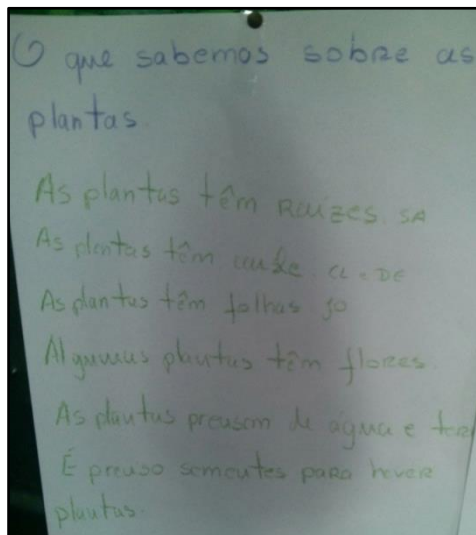 O que sabemos sobre as
plantas.
As plantas têm Raízes. SA
As plantas têm caule. CL. DE
As plantas têm folhas JO
Algumas plantas têm flores.
As plantas precisam de água e terr
É preciso sementes para haver
plantas.